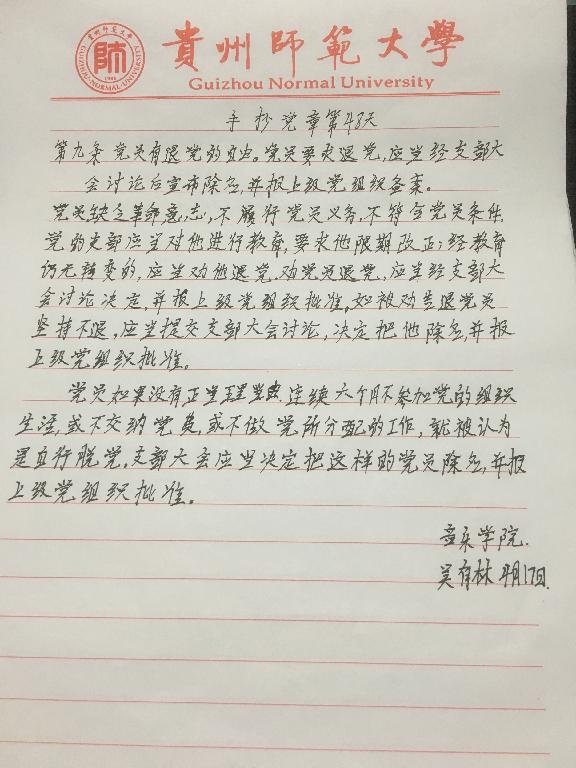 貴州師範大學
Guizhou Normal University
手抄党章第48天
第九条党员有退党的自由。党员要求退党,应当经支部大
会讨论后宣布除名,并报上级党组织备案。
党员缺乏革命意志,不履行党员义务,不符合党员条件,
党的支部应当对他进行教育,要求他限期改正;经教育
仍无转变的,应当劝他退党。劝党员退党,应当经支部大
会讨论决定,并报上级党组织批准。如被劝告退党员
坚持不退,应当提交支部大会讨论,决定把他除名,并报
上级党组织批准。
党员如果没有正当理由,连续六个月不参加党的组织
生活,或不交纳党费,或不做党所分配的工作,就被认为
是自行脱党。支部大会应当决定把这样的党员除名,并报
上级党组织批准。
音乐学院.
吴有林 月17日.